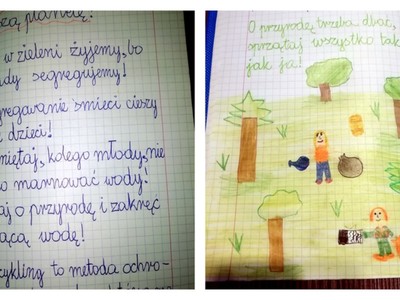 zą planetę!
w zieleni żyjemy, bo
ady segregujemy!
gregowanie śmieci cieszy
dzieci!
miętaj, kolego młody, nie
o marnować wody!
aj o przyrodę i zakręć
ącą wodę!
cykling to metoda ochro-
O przyrodę trzeba dbać,
sprzątaj wszystko tak
jak ja!